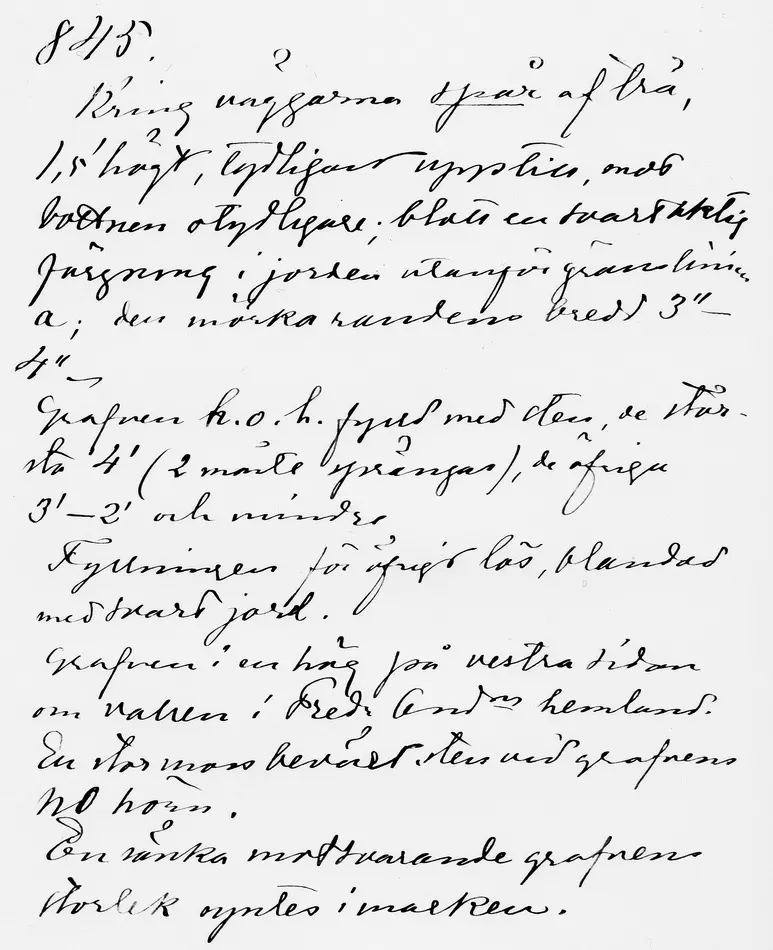 845.
Kring väggarna spår af trä,
1,5' högt, tydligast upptill, mot
bottnen otydligare; blott en svartaktig
färgning i jorden utanför gränslinien
a; den mörka randens bredd 3"–
4"
Grafven h.o.h. fylld med sten, de stör-
sta 4' (2 måste sprängas), de öfriga
3'–2' och mindre
Fyllningen för öfrigt lös, blandad
med svart jord.
Grafven i en häg på vestra sidan
om vallen i Fredr Andns hemland.
En stor mossbeväxt sten vid grafvens
NO hörn.
En sänka motsvarande grafvens
storlek syntes i marken.